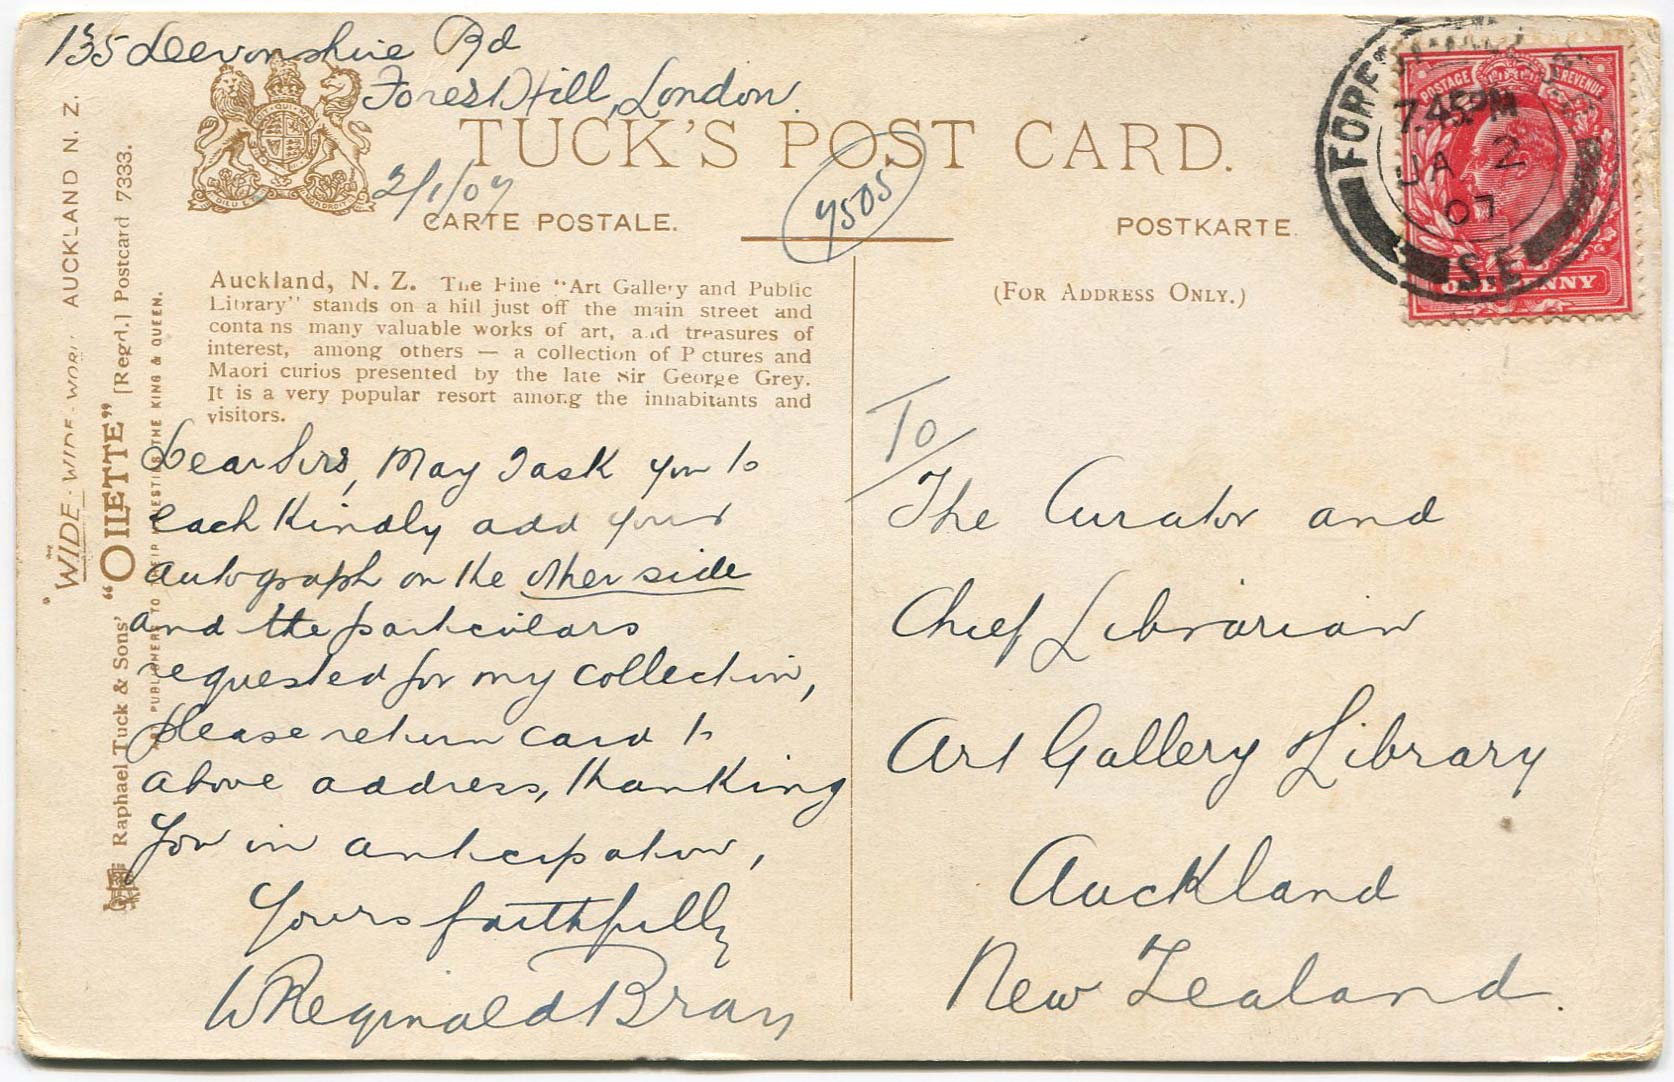 135 Devonshire Rd
Forest Hill, London.
2/1/07
TUCK'S POST CARD.
CARTE POSTALE.
POSTKARTE.
(FOR ADDRESS ONLY.)
FOREST
7.45PM
JA 2
07
S.E
POSTAGE REVENUE
ONE PENNY
Auckland, N. Z. The Fine "Art Gallery and Public
Library" stands on a hill just off the main street and
contains many valuable works of art, and treasures of
interest, among others — a collection of Pictures and
Maori curios presented by the late Sir George Grey.
It is a very popular resort among the inhabitants and
visitors.
Dear Sirs, May I ask you to
each kindly add your
autograph on the other side
and the particulars
requested for my collection,
please return card to
above address, thanking
you in anticipation,
Yours faithfully
W Reginald Bray
To
The Curator and
Chief Librarian
Art Gallery & Library
Auckland
New Zealand.
"WIDE-WIDE-WORLD AUCKLAND N. Z.
Raphael Tuck & Sons' "OILETTE" [Regd.] Postcard 7333.
ART PUBLISHERS TO THEIR MAJESTIES THE KING & QUEEN.